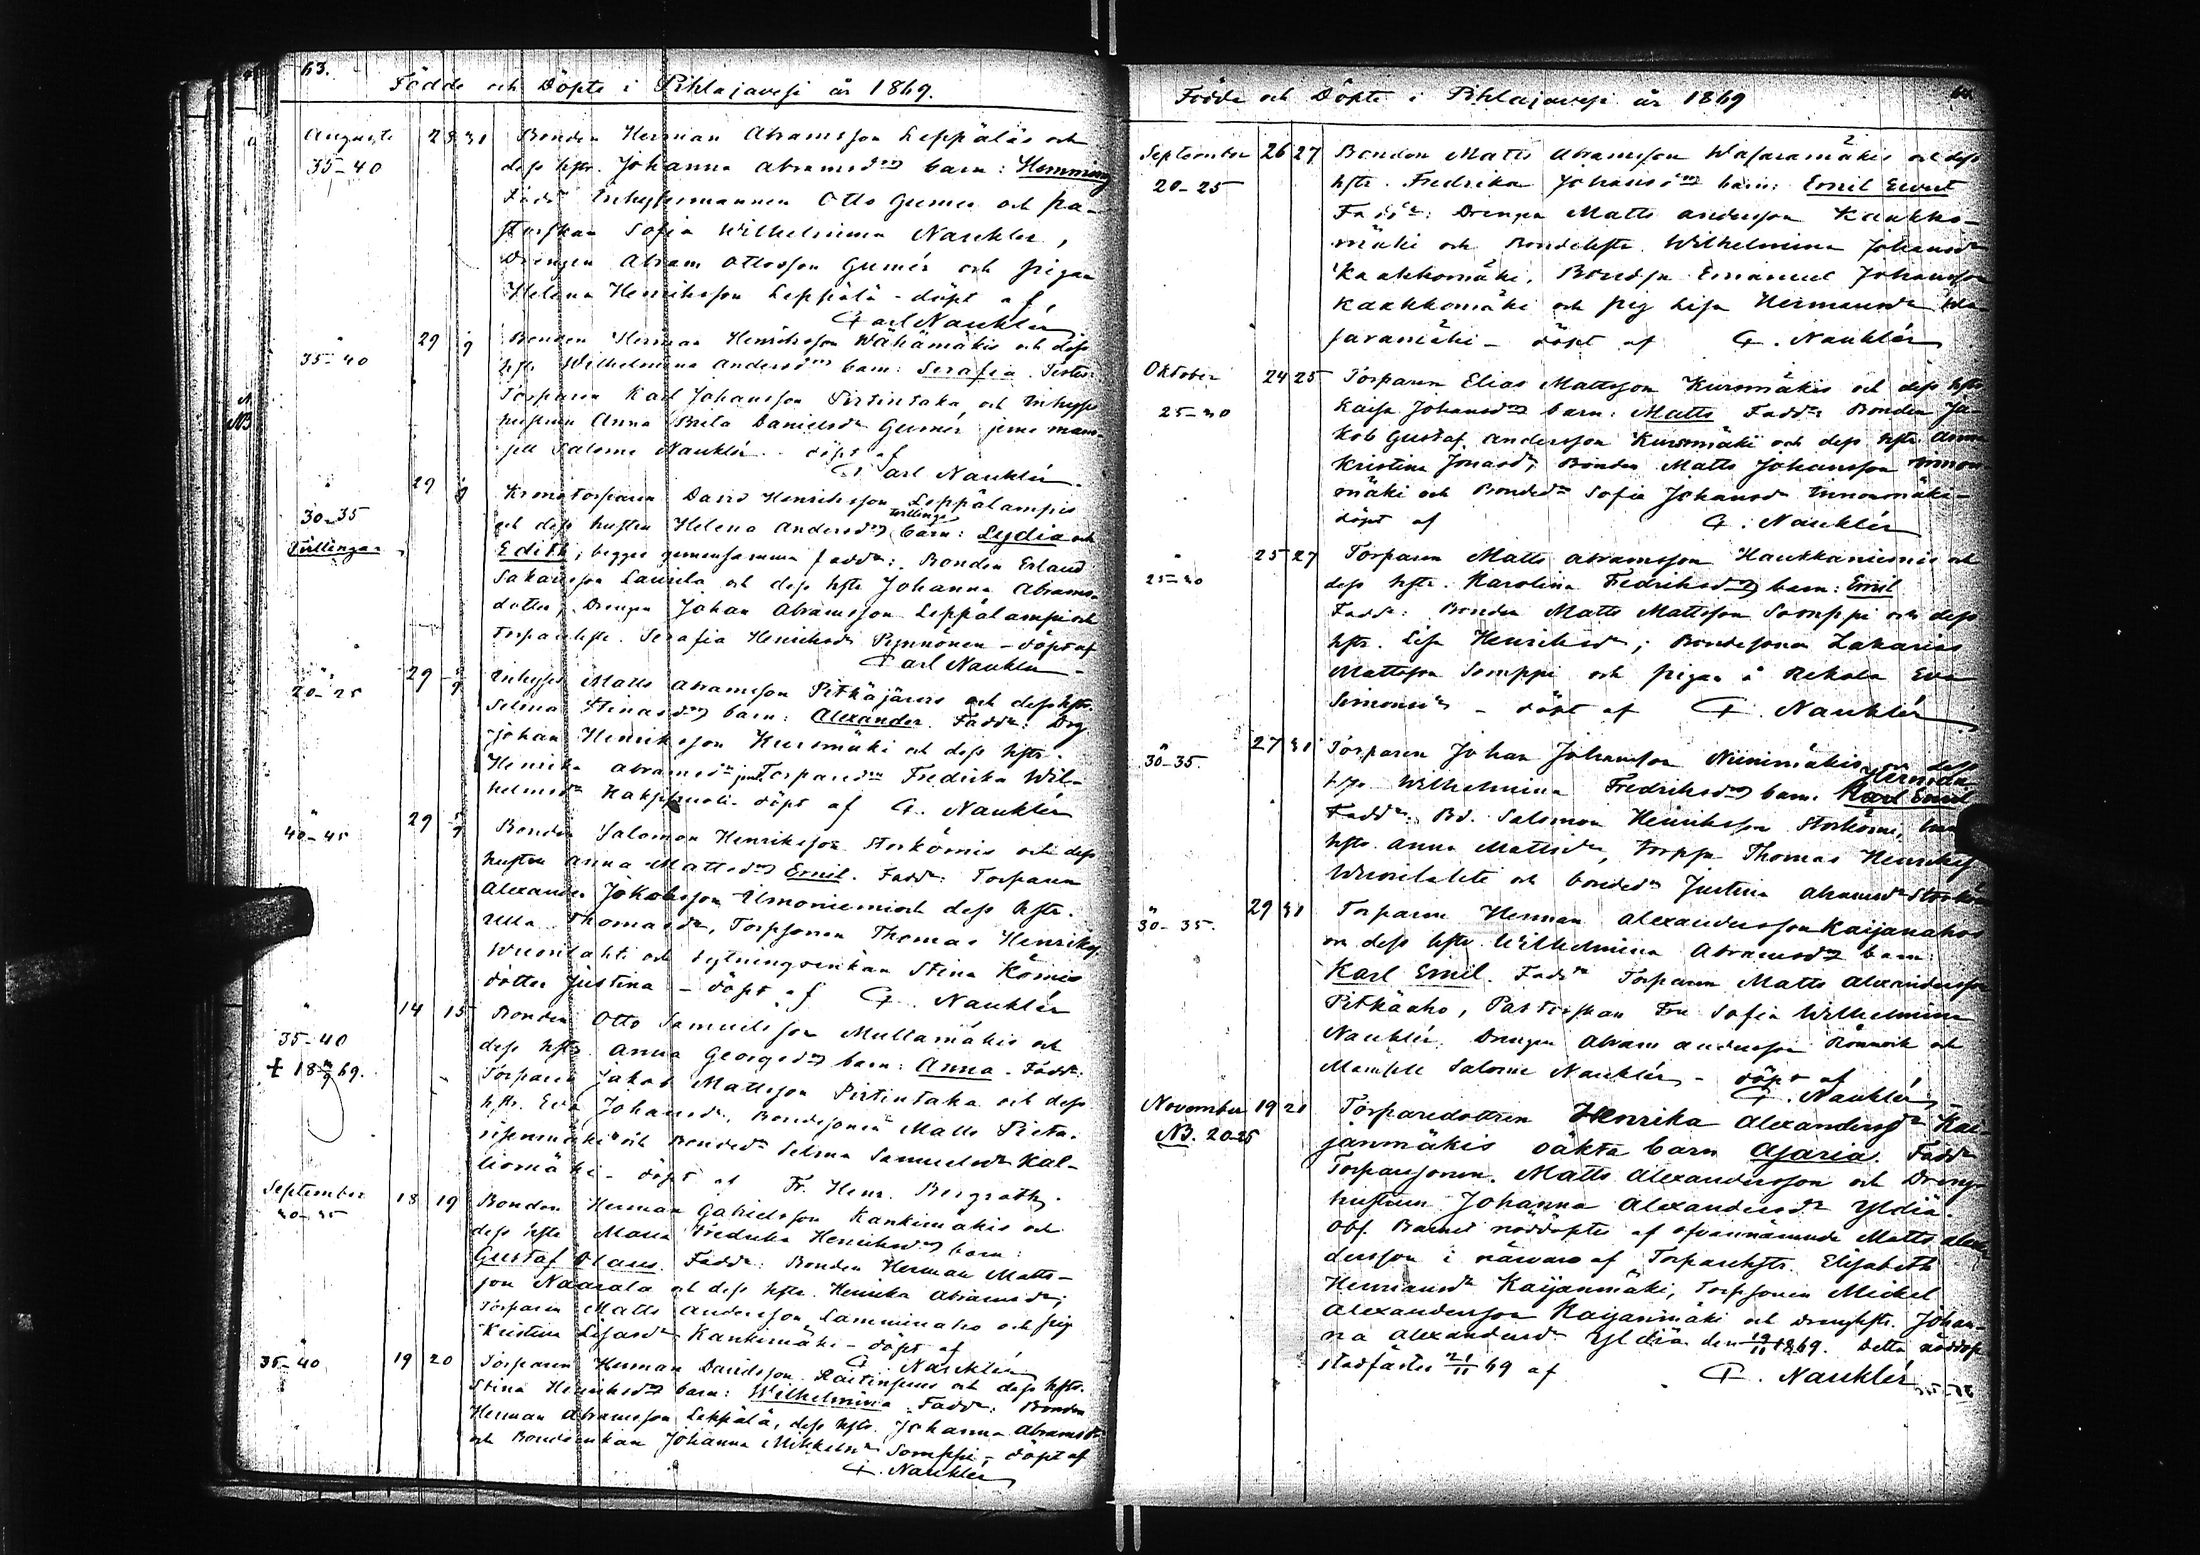 63.
Födde och Döpte i Pihlajavesi år 1869.
Augusti 28 31 Bonden Herman Abramsson Leppäläs och
35-40 dess hstr. Johanna Abramsdrs barn: Hemming
Fadd Inhysesmannen Otto Gumer och pa-
storskan Sofia Wilhelmina Naukler,
Drengen Abram Ottosson Gumér och pigan
Helena Henriksson Leppälä - döpt af
Carl Nauklér
" 29 Bonden Herman Henriksson Wähämäkis och dess
35-40 hstr Wilhelmina Andersdrs barn: Serafia.
Torparen Karl Johansson Pirtintaka och Inhyses
hustrun Anna Brita Danielsdr Gumér jemte mam-
sell Salome Nauklér - döpt af
Carl Nauklér.
" 29 Kronotorparen David Henriksson Leppälampis
30-35 och dess hustru Helena Andersdrs tvillinge barn: Lydia och
Tvillingar Edith, begges gemensamma fadd: Bonden Erland
Sakarisson Laurila och dess hstr Johanna Abrams-
dotter, Drengen Johan Abramsson Leppälampi och
Torparehstr. Serafia Henriksdr Pynnönen - döpt af
Carl Naukler
" 29 Inhyses Matts Abramsson Pitkäjärvis och dess hstr.
20-25 Selma Stinasdrs barn: Alexander. Fadd: Drg
Johan Henriksson Kursmäki och dess hstr.
Henrika Abramsdr jemte Torparedr Fredrika Wil-
helmsdr - döpt af C. Nauklér
" 29 Bonden Salomon Henriksson Storkömis och dess
40-45 hustru Anna Mattsdrs Emil. Fadd: Torparen
Alexander Jakobsson Ulmoniemi och dess hstr.
Ulla Thomasdr, Torpsonen Thomas Henriks.
Wuorilahti och sytningsenkan Stina Kömis
dotter Justina - döpt af C. Nauklér
" 14 15 Bonden Otto Samuelsson Mullamäkis och
35-40 dess hstr Anna Georgsdrs barn: Anna. Fadd:
+ 18 69. Torparen Jakob Mattsson Pirtintaka och dess
hstr. Eva Johansdr, Bondesonen Matts
och Bondedr Selma Samuelsdr Kal-
liomäki - döpt af Fr. Henr. Bergroth.
September 18 19 Bonden Herman Gabrielsson Kankimäkis och
dess hstr Maria Fredrika Henriksdrs barn:
Gustaf Olaus. Fadd: Bonden Herman Matts-
son Naarala och dess hstr. Henrika Abramsdr;
Torparen Matts Andersson Lamminaho och pig
Kristina Kankimäki - döpt af
C. Nauklér
" 19 20 Torparen Herman Davidsson och dess hstr.
35-40 Stina Henriksdrs barn: Wilhelmina. Fadd: Bonden
Herman Abramsson Leppälä, dess hstr. Johanna Abramsdr
och Bondeenkan Johanna Mikkelsdr Somppi, - döpt af
C. Naukler
Födde och Döpte i Pihlajavesi år 1869
September 26 27 Bonden Matts Abramsson Wasaramäkis och dess
20-25 hstr. Fredrika Johansdrs barn: Emil Evert
Fadd: Drengen Matts Andersson Kaakko-
mäki och Bondehstr Wilhelmina Johansdr
Kaakkomäki, Bondson Emanuel Johansson
Kaakkomäki och pig Lisa Hermansdr Wa-
saramäki - döpt af C. Nauklér
Oktober 24 25 Torparen Elias Mattsson Kursmäkis och dess hstr
25-30 Kaisa Johansdrs barn: Matts Fadd: Bonden Ja-
kob Gustaf Andersson Kursmäki och dess hstr Anna
Kristina Jonasdr, Bonden Matts Johansson
mäki och Bondedr Sofia Johansdr
döpt af C. Nauklér
" 25 27 Torparen Matts Abramsson Haukkaniemis och
25-30 dess hstr. Karolina Fredriksdrs barn: Emil
Fadd: Bonden Matts Mattsson Somppi och dess
hstr. Lisa Henriksdr; Bondesonen Zakarias
Mattsson Somppi och pigan å Rekola Eva
Simonsdr - döpt af C. Nauklér
" 27 31 Torparen Johan Johansson Niinimäkis o. dess
30-35. hstr Wilhelmina Fredriksdrs barn: Karl Emil Herman
Fadd: Bd. Salomon Henriksson Storkömi,
hstr. Anna Mattsdr, torpson Thomas Henriks
Wuorilahti och bondedr Justina Abramsdr Storköm
" 29 31 Torparen Herman Alexandersson Kaijanahos
30-35. o dess hstr Wilhelmina Abramsdrs barn:
Karl Emil. Fadd Torparen Matts Alexandersson
Pitkäaho, Pastorskan Fru Sofia Wilhelmina
Nauklér, Drengen Abram Andersson och
Mamsell Salome Nauklér - döpt af
C. Nauklér
November 19 21 Torparedottren Henrika Alexandersdr Kai-
NB. 20-25 janmäkis oäkta barn Asaria. Fadd
Torparesonen Matts Alexandersson och Drenge
hustrun Johanna Alexandersdr Yldiä.
Obs. Barnet nöddöptes af ofvannämnde Matts Alexan
dersson i närvaro af Torparehstr. Elisabeth
Hermansdr Kaijanmäki, Torpsonen Mickel
Alexandersson Kaijanmäki och drenghstr. Johan-
na Alexandersdr Yldiä den 19/11 1869. Detta nöddop
stadfästes 21/11 69 af C. Nauklér